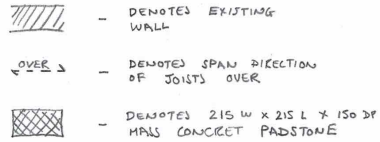 - DENOTES EXISTING
WALL
OVER
- DENOTES SPAN DIRECTION
OF JOISTS OVER
- DENOTES 215 W x 215 L x 150 DP
MASS CONCRET PADSTONE